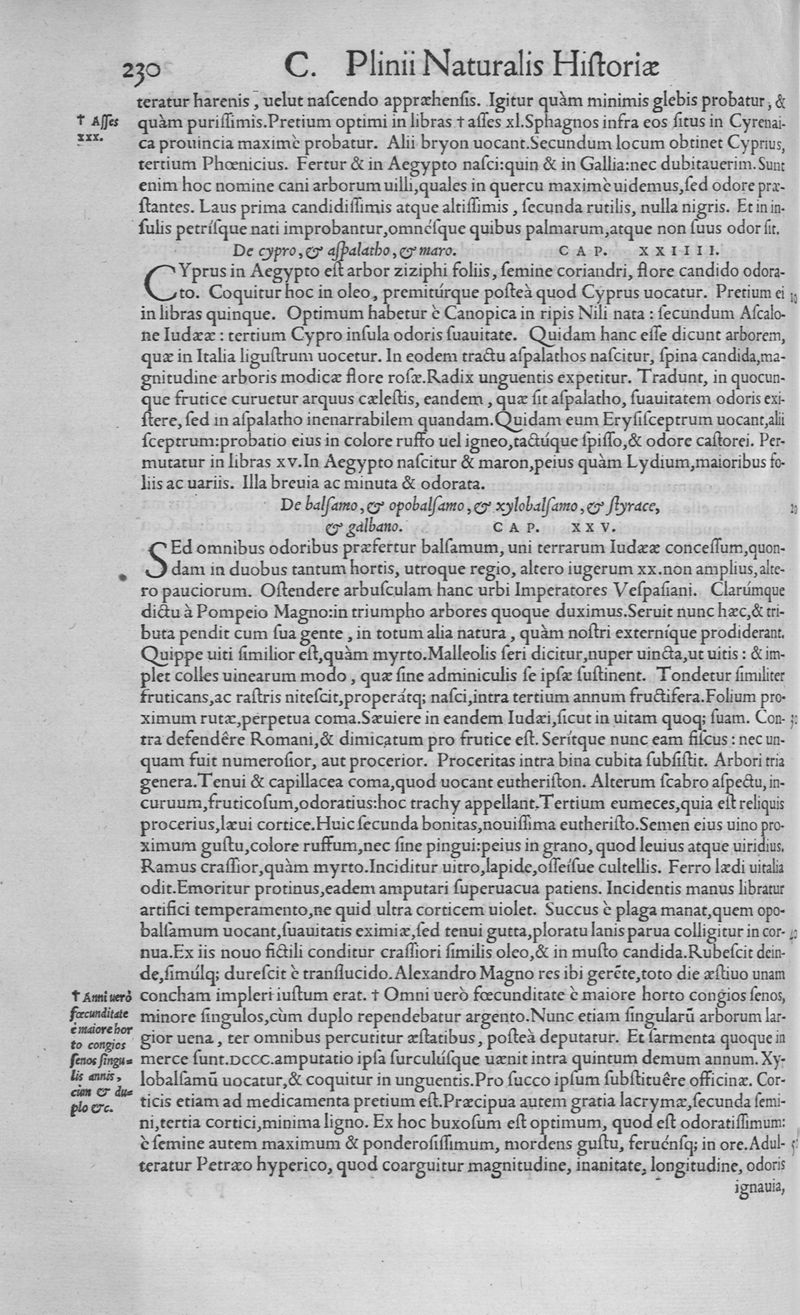 230 C. Plinii Naturalis Hiſtoriæ
teratur harenis, uelut naſcendo appræhenſis. Igitur quàm minimis glebis probatur, &
† Aſſes
xxx.
quàm puriſſimis.Pretium optimi in libras † aſſes xl.Sphagnos infra eos ſitus in Cyrenai-
ca prouincia maximè probatur. Alii bryon uocant.Secundum locum obtinet Cyprius,
tertium Phœnicius. Fertur & in Aegypto naſci:quin & in Gallia:nec dubitauerim.Sunt
enim hoc nomine cani arborum uilli,quales in quercu maximè uidemus,ſed odore præ-
ſtantes. Laus prima candidiſſimis atque altiſſimis, ſecunda rutilis, nulla nigris. Et in in-
ſulis petríſque nati improbantur,omnéſque quibus palmarum,atque non ſuus odor ſit.
De cypro, & aſpalatho, & maro. CAP. XXIIII.
CYprus in Aegypto eſt arbor ziziphi foliis, ſemine coriandri, flore candido odora-
to. Coquitur hoc in oleo, premitúrque poſteà quod Cyprus uocatur. Pretium ei 10
in libras quinque. Optimum habetur è Canopica in ripis Nili nata : ſecundum Aſcalo-
ne Iudææ : tertium Cypro inſula odoris ſuauitate. Quidam hanc eſſe dicunt arborem,
quæ in Italia liguſtrum uocetur. In eodem tractu aſpalathos naſcitur, ſpina candida,ma-
gnitudine arboris modicæ flore roſæ.Radix unguentis expetitur. Tradunt, in quocun-
que frutice curuetur arquus cæleſtis, eandem, quæ ſit aſpalatho, ſuauitatem odoris exi-
ſtere, ſed in aſpalatho inenarrabilem quandam.Quidam eum Eryſiſceptrum uocant,alii
ſceptrum:probatio eius in colore ruffo uel igneo,tactúque ſpiſſo,& odore caſtorei. Per-
mutatur in libras xv.In Aegypto naſcitur & maron,peius quàm Lydium,maioribus fo-
liis ac uariis. Illa breuia ac minuta & odorata.
De balſamo, & opobalſamo, & xylobalſamo, & ſtyrace, 20
& galbano. CAP. XXV.
SEd omnibus odoribus præfertur balſamum, uni terrarum Iudææ conceſſum,quon-
dam in duobus tantum hortis, utroque regio, altero iugerum xx.non amplius,alte-
ro pauciorum. Oſtendere arbuſculam hanc urbi Imperatores Veſpaſiani. Clarúmque
dictu à Pompeio Magno:in triumpho arbores quoque duximus.Seruit nunc hæc,& tri-
buta pendit cum ſua gente, in totum alia natura, quàm noſtri externíque prodiderant.
Quippe uiti ſimilior eſt,quàm myrto.Malleolis ſeri dicitur,nuper uincta,ut uitis : & im-
plet colles uinearum modo, quæ ſine adminiculis ſe ipſæ ſuſtinent. Tondetur ſimiliter
fruticans,ac raſtris niteſcit,properátq; naſci,intra tertium annum fructifera.Folium pro-
ximum rutæ,perpetua coma.Sæuiere in eandem Iudæi,ſicut in uitam quoq; ſuam. Con- 30
tra defendêre Romani,& dimicatum pro frutice eſt. Serítque nunc eam fiſcus : nec un-
quam fuit numeroſior, aut procerior. Proceritas intra bina cubita ſubſiſtit. Arbori tria
genera.Tenui & capillacea coma,quod uocant eutheriſton. Alterum ſcabro aſpectu,in-
curuum,fruticoſum,odoratius:hoc trachy appellant.Tertium eumeces,quia eſt reliquis
procerius,læui cortice.Huic ſecunda bonitas,nouiſſima eutheriſto.Semen eius uino pro-
ximum guſtu,colore ruffum,nec ſine pingui:peius in grano, quod leuius atque uiridius.
Ramus craſſior,quàm myrto.Inciditur uitro,lapide,oſſeíſue cultellis. Ferro lædi uitalia
odit.Emoritur protinus,eadem amputari ſuperuacua patiens. Incidentis manus libratur
artifici temperamento,ne quid ultra corticem uiolet. Succus è plaga manat,quem opo-
balſamum uocant,ſuauitatis eximiæ,ſed tenui gutta,ploratu lanis parua colligitur in cor- 40
nua.Ex iis nouo fictili conditur craſſiori ſimilis oleo,& in muſto candida.Rubeſcit dein-
de,ſimúlq; dureſcit è tranſlucido.Alexandro Magno res ibi gerẽte,toto die æſtiuo unam
† Anni uerò
fœcunditate
è maiore hor
to congios
ſenos ſingu=
lis annis,
cùm & du=
plo &c.
concham impleri iuſtum erat. † Omni uerò fœcunditate è maiore horto congios ſenos,
minore ſingulos,cùm duplo rependebatur argento.Nunc etiam ſingularũ arborum lar-
gior uena, ter omnibus percutitur æſtatibus, poſteà deputatur. Et ſarmenta quoque in
merce ſunt.DCCC.amputatio ipſa ſurculúſque uænit intra quintum demum annum. Xy-
lobalſamũ uocatur,& coquitur in unguentis.Pro ſucco ipſum ſubſtituêre officinæ. Cor-
ticis etiam ad medicamenta pretium eſt.Præcipua autem gratia lacrymæ,ſecunda ſemi-
ni,tertia cortici,minima ligno. Ex hoc buxoſum eſt optimum, quod eſt odoratiſſimum:
è ſemine autem maximum & ponderoſiſſimum, mordens guſtu, feruénſq; in ore.Adul-
teratur Petræo hyperico, quod coarguitur magnitudine, inanitate, longitudine, odoris
ignauia,